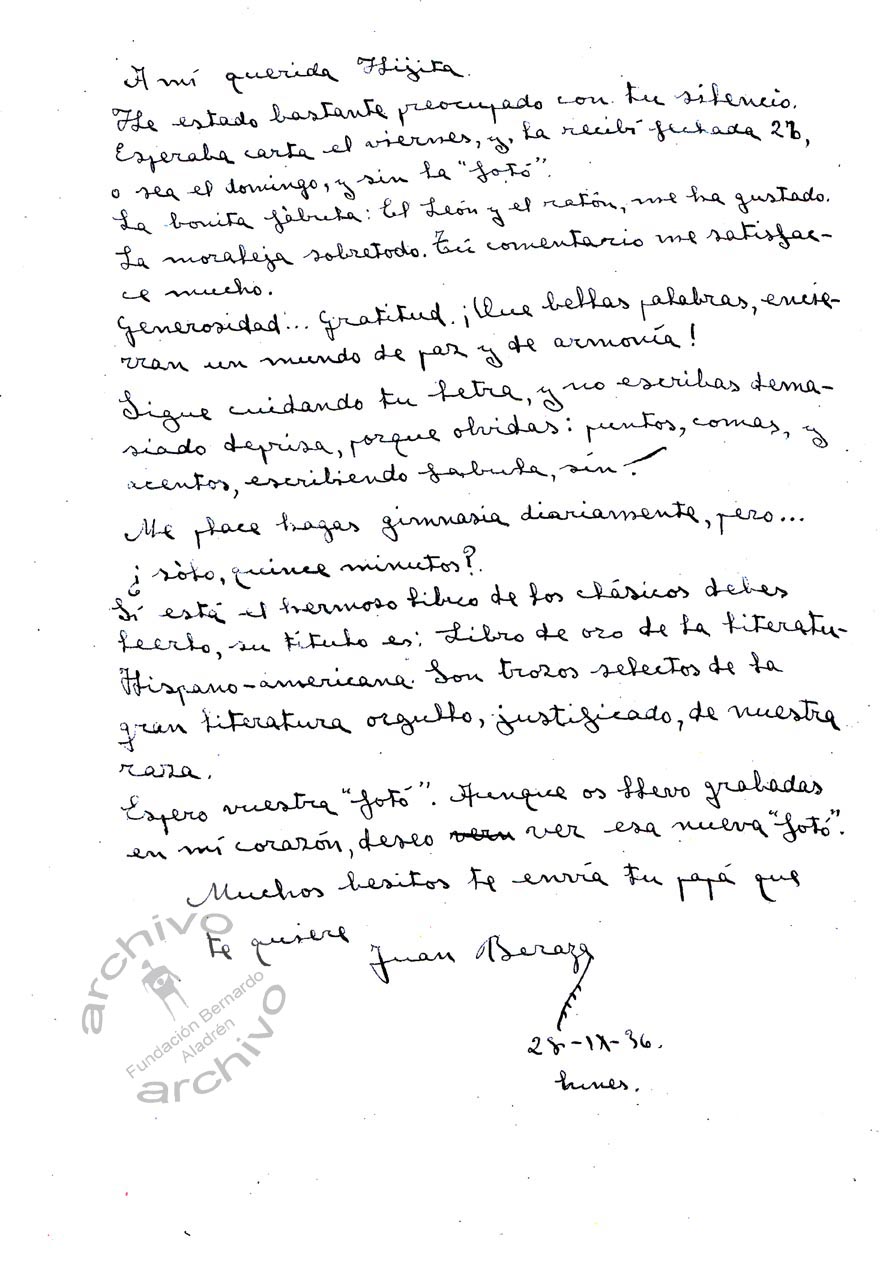 A mí querida Hijita.
He estado bastante preocupado con tu silencio.
Esperaba carta el viernes, y, la recibí fechada 27,
o sea el domingo, y sin la "fotó".
La bonita fàbula: El León y el ratón, me ha gustado.
La moraleja sobretodo. Tú comentario me satisfac-
ce mucho.
Generosidad... Gratitud. ¡Que bellas palabras, encie-
rran un mundo de paz y de armonía!
Sigue cuidando tu letra, y no escribas dema-
siado deprisa, porque olvidas: puntos, comas, y
acentos, escribiendo fabula, sín
Me place hagas gimnasia diariamente, pero...
¿ sòlo, quince minutos?.
Sí está el hermoso libro de los clásicos debes
leerlo, su título es: Libro de oro de la literatu-
Hispano-americana. Son trozos selectos de la
gran literatura orgullo, justificado, de nuestra
raza.
Espero vuestra "fotó". Aunque os llevo grabadas
en mí corazón, deseo ver esa nueva "fotó".
Muchos besitos te envía tu papá que
te quiere Juan Beraza
28-IX-36.
lunes.
archivo
Fundación Bernardo
Aladrén
archivo